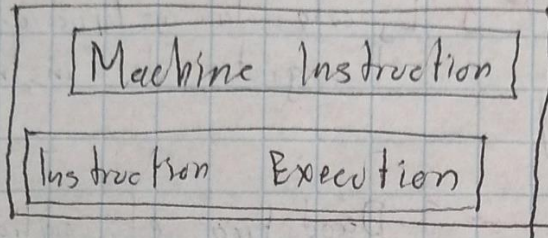 Machine Instruction
Instruction Execution